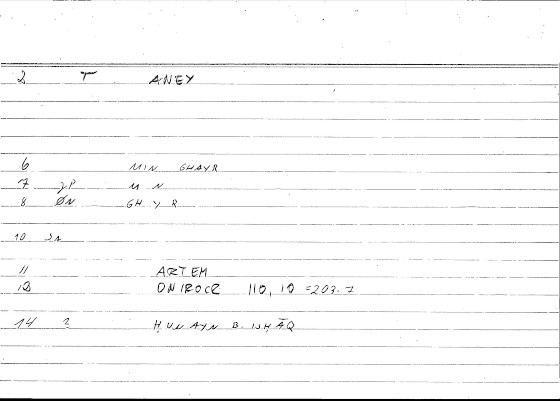 2 T ANEY
6 MIN GHAYR
7 JP M N
8 ØN GH Y R
10 JN
11 ARTEM
12 ONIROCR 110, 10 =203.7
14 2 ḤUNAYN B. ISḤĀQ